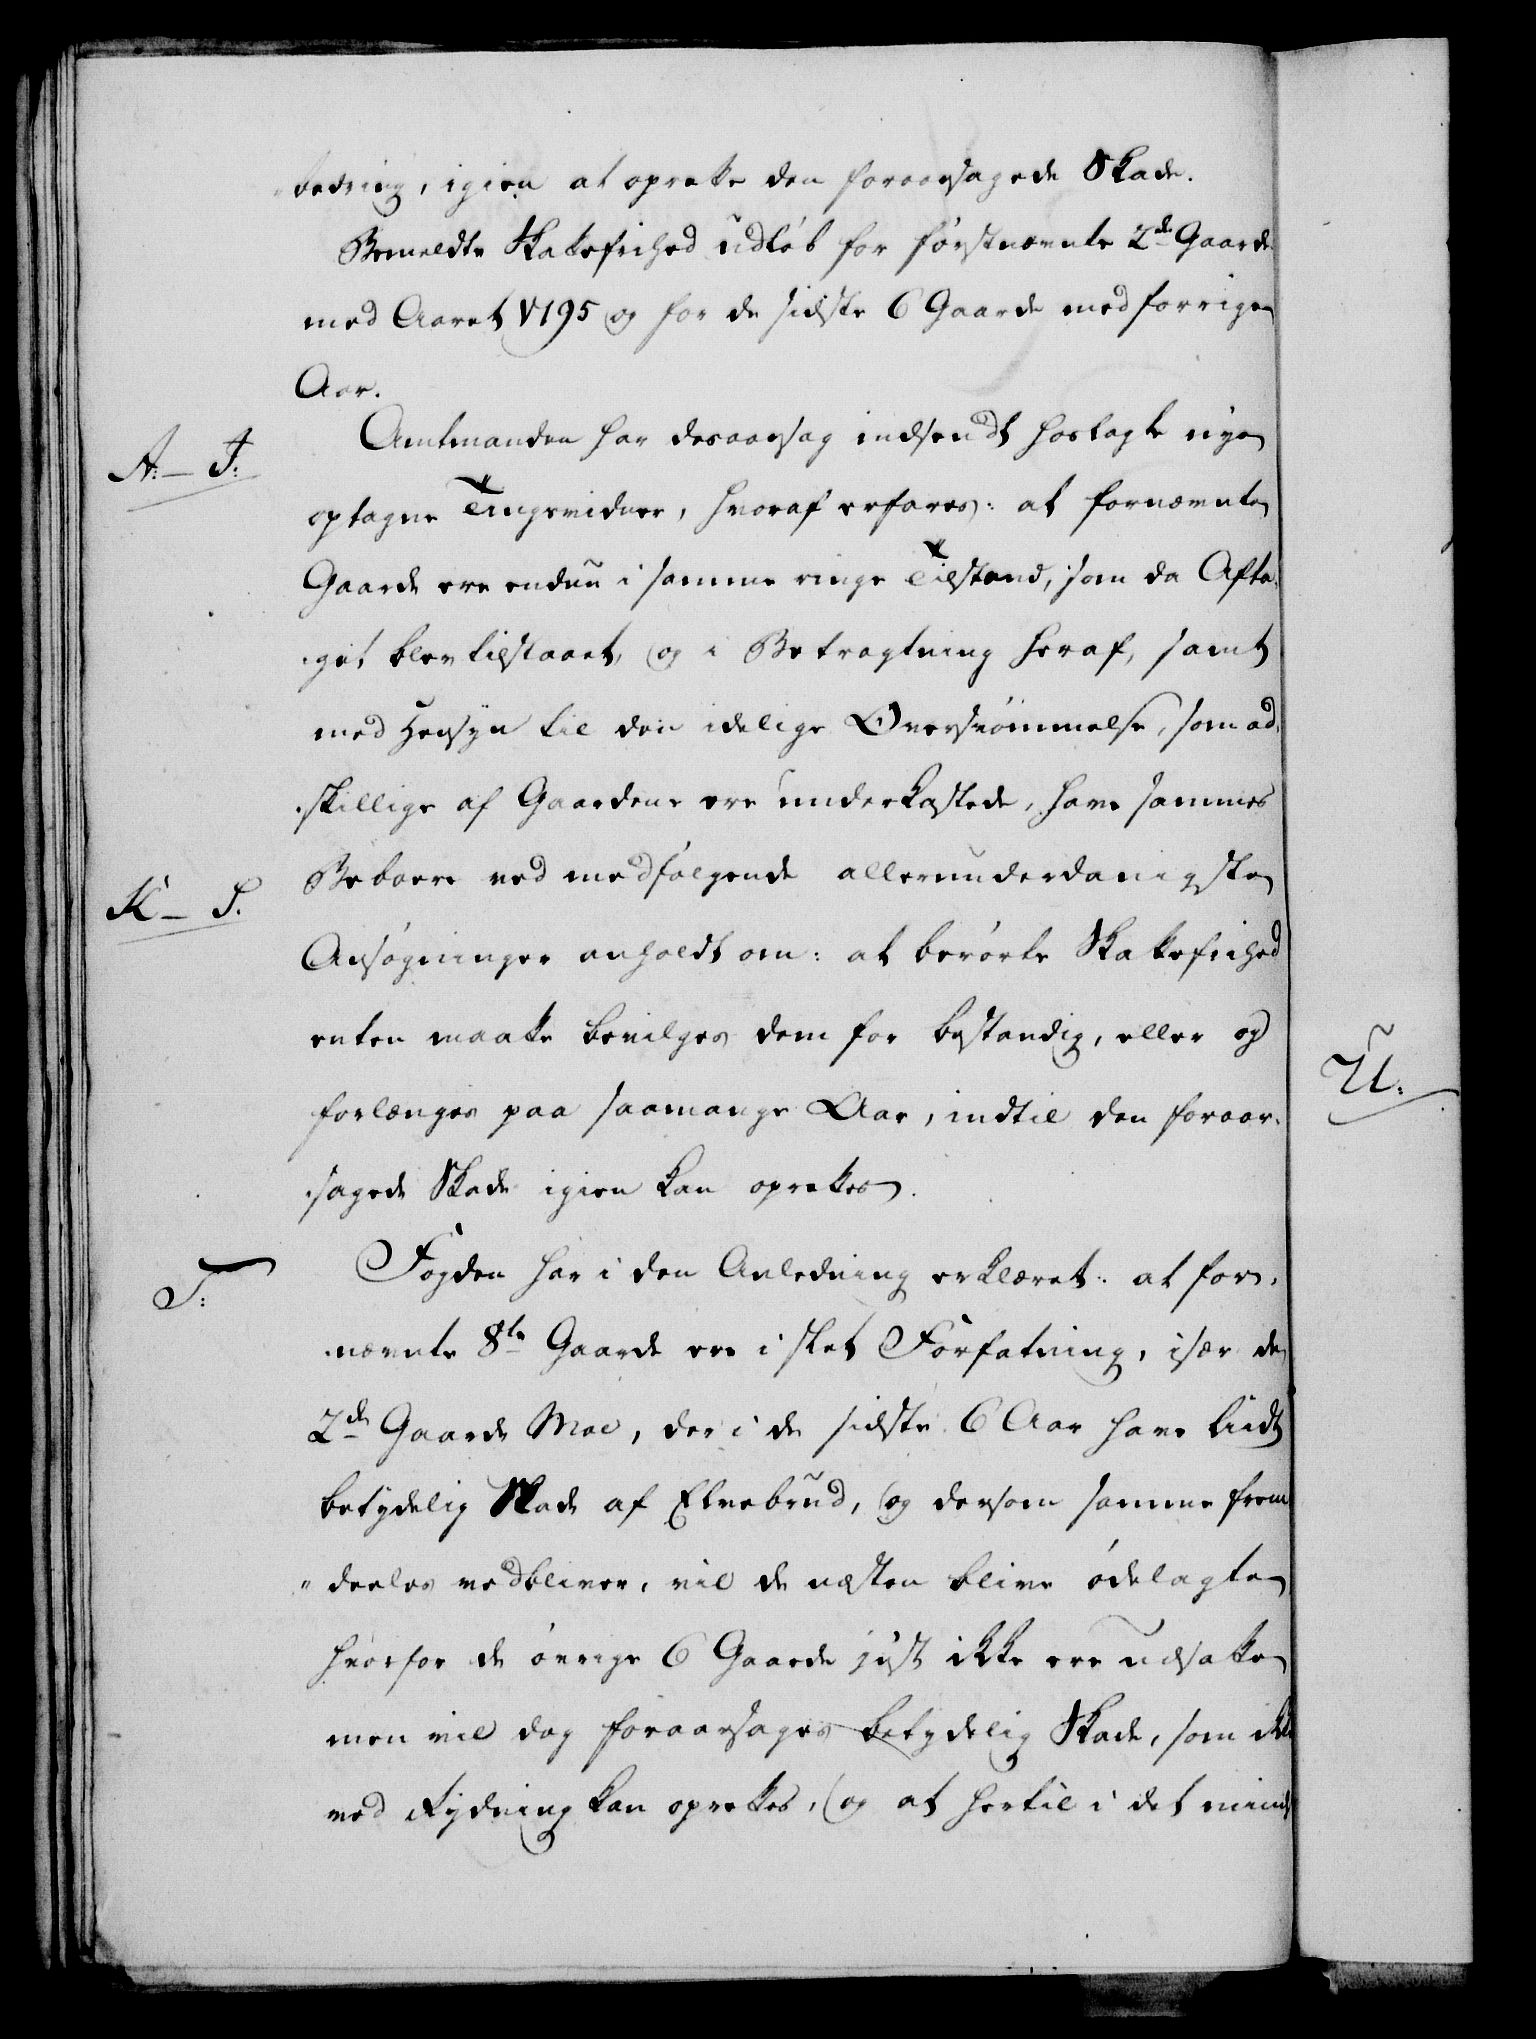 bedring, igien at oprette den foraarsagede Skade.
Bemeldte Skattefrihed udløb for førstnævnte 2de Gaarde
med Aaret 1795 og for de sidste 6 Gaarde med forrige
Aar.
A: - J:
Amtmanden har desaarsag indsendt hoslagte nye
optagne Tingsvidner, hvoraf erfares: at fornævnte
Gaarde ere endnu i samme ringe Tilstand, som da Afta-
get blev tilstaaet, og i Betragtning heraf, samt
med Hensyn til den idelige Oversvømmelse, som ad-
skillige af Gaardene ere underkastede, have sammes
K - S.
Beboere ved medfølgende allerunderdanigste
Ansøgninger anholdt om: at berørte Skattefrihed
enten maatte bevilges dem for bestandig, eller og
forlænges paa saamange Aar, indtil den foraar-
sagede Skade igien kan oprettes.
T:
Fogden har i den Anledning erklæret: at for-
nævnte 8te Gaarde ere i slet Forfatning, især de
2de Gaarde Moe, der i de sidste 6 Aar have liidt
betydelig Skade af Elvebrud, og dersom samme frem
deeles vedbliver, vil de næsten blive ødelagte
hvorfor de øvrige 6 Gaarde just ikke ere udsatte
men vil dog foraarsages betydelig Skade, som ikke
ved Rydning kan oprettes, og at hertil i det mindst
U: